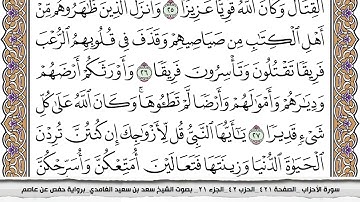 ٱلْقِتَالَ وَكَانَ ٱللَّهُ قَوِيًّا عَزِيزًا ٢٥ وَأَنزَلَ ٱلَّذِينَ ظَٰهَرُوهُم مِّنْ
أَهْلِ ٱلْكِتَٰبِ مِن صَيَاصِيهِمْ وَقَذَفَ فِي قُلُوبِهِمُ ٱلرُّعْبَ
فَرِيقًا تَقْتُلُونَ وَتَأْسِرُونَ فَرِيقًا ٢٦ وَأَوْرَثَكُمْ أَرْضَهُمْ
وَدِيَٰرَهُمْ وَأَمْوَٰلَهُمْ وَأَرْضًا لَّمْ تَطَـُٔوهَا ۚ وَكَانَ ٱللَّهُ عَلَىٰ كُلِّ
شَيْءٍ قَدِيرًا ٢٧ يَٰٓأَيُّهَا ٱلنَّبِيُّ قُل لِّأَزْوَٰجِكَ إِن كُنتُنَّ تُرِدْنَ
ٱلْحَيَوٰةَ ٱلدُّنْيَا وَزِينَتَهَا فَتَعَالَيْنَ أُمَتِّعْكُنَّ وَأُسَرِّحْكُنَّ
سورة الأحزاب _الصفحة ٤٢١_ الحزب ٤٢_الجزء ٢١_ بصوت الشيخ سعد بن سعيد الغامدي_برواية حفص عن عاصم